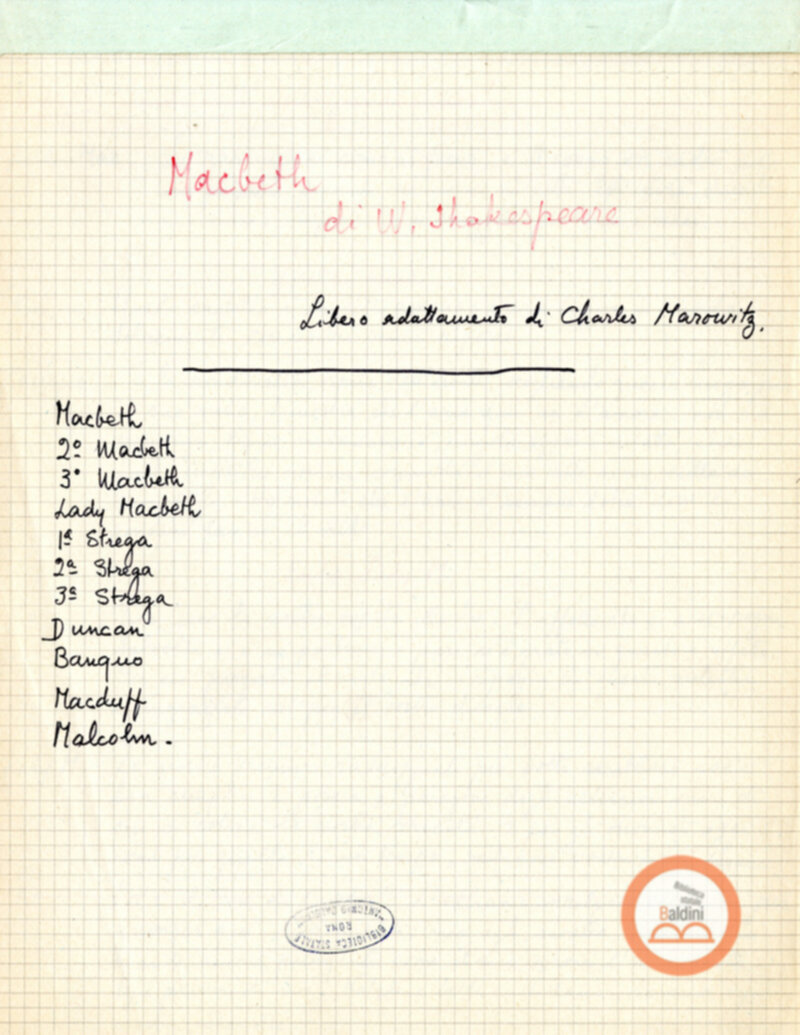 Macbeth
di W. Shakespeare
Libero adattamento di Charles Marowitz.
Macbeth
2º Macbeth
3º Macbeth
Lady Macbeth
1ª Strega
2ª Strega
3ª Strega
Duncan
Banquo
Macduff
Malcolm.
BIBLIOTECA STATALE
"ANTONIO BALDINI"
ROMA
Biblioteca
statale
Baldini